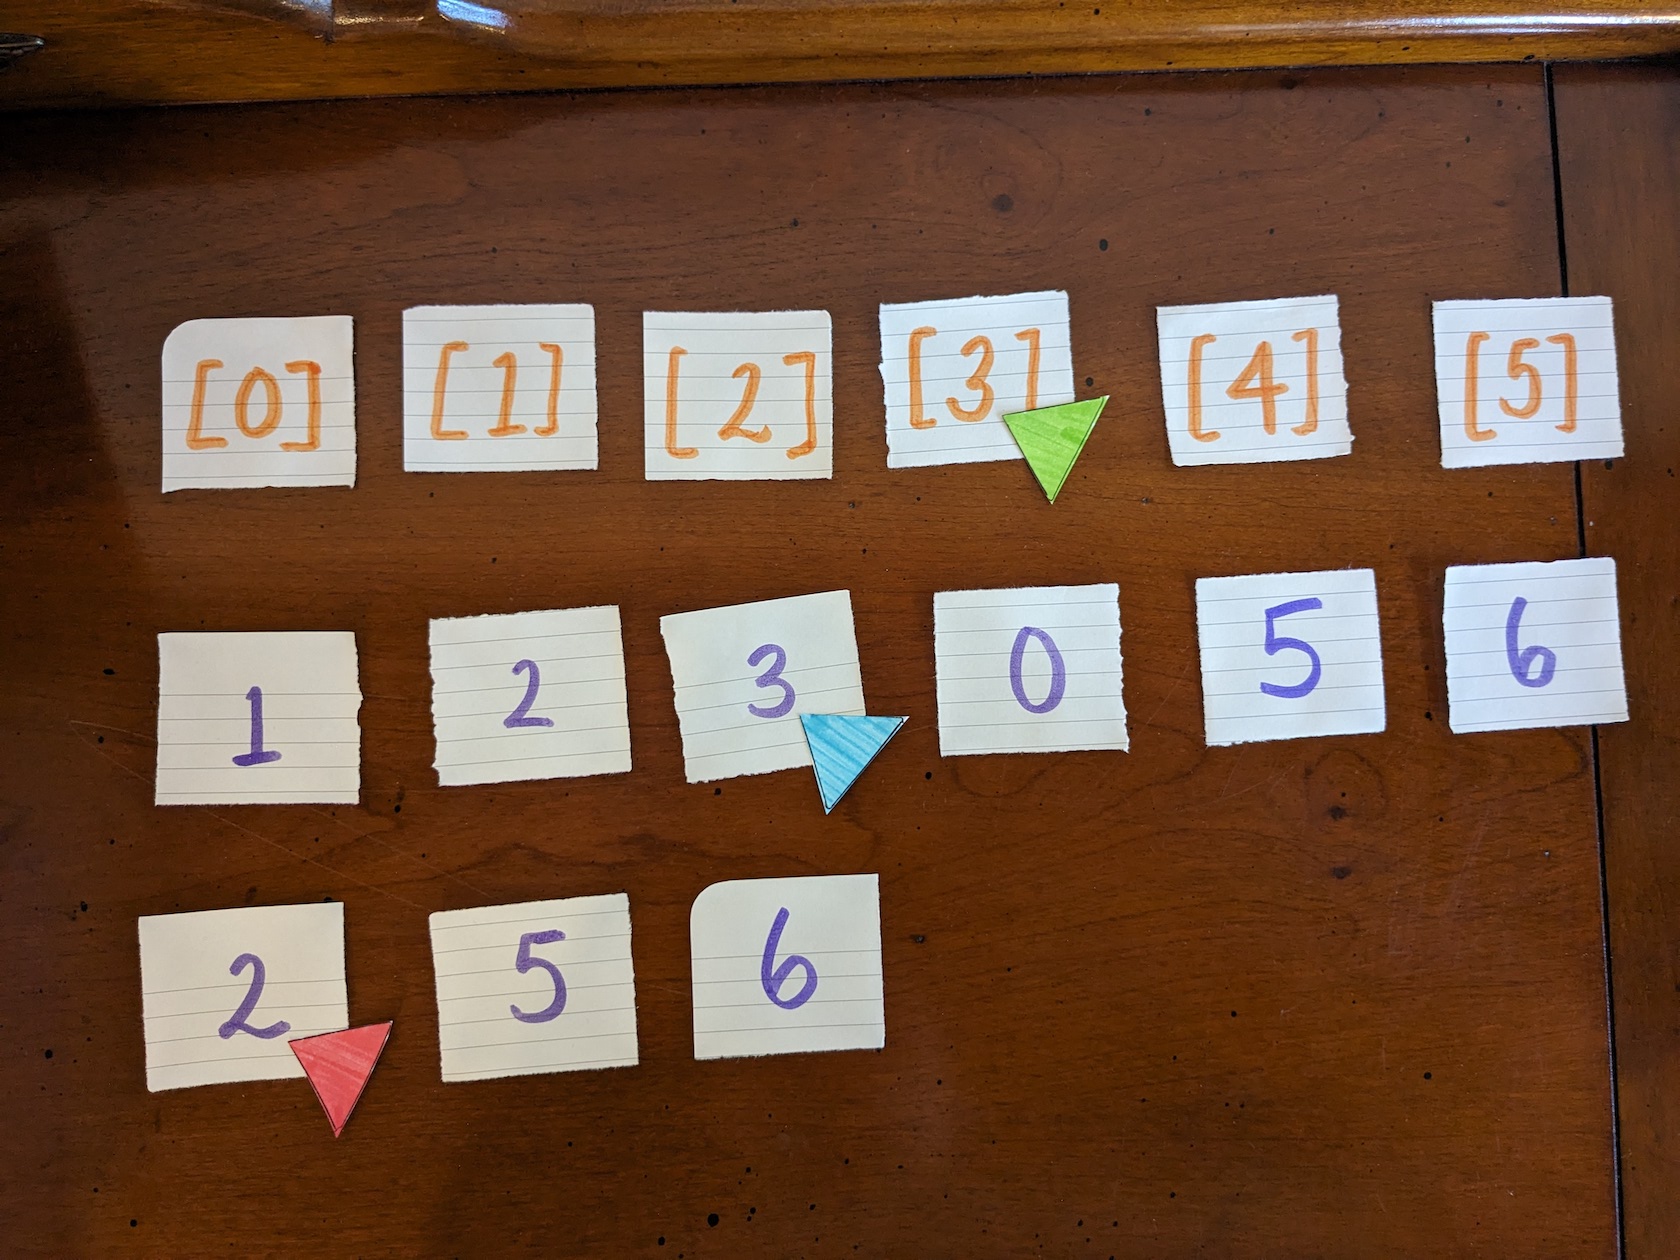 [0] [1] [2] [3] [4] [5]
1 2 3 0 5 6
2 5 6